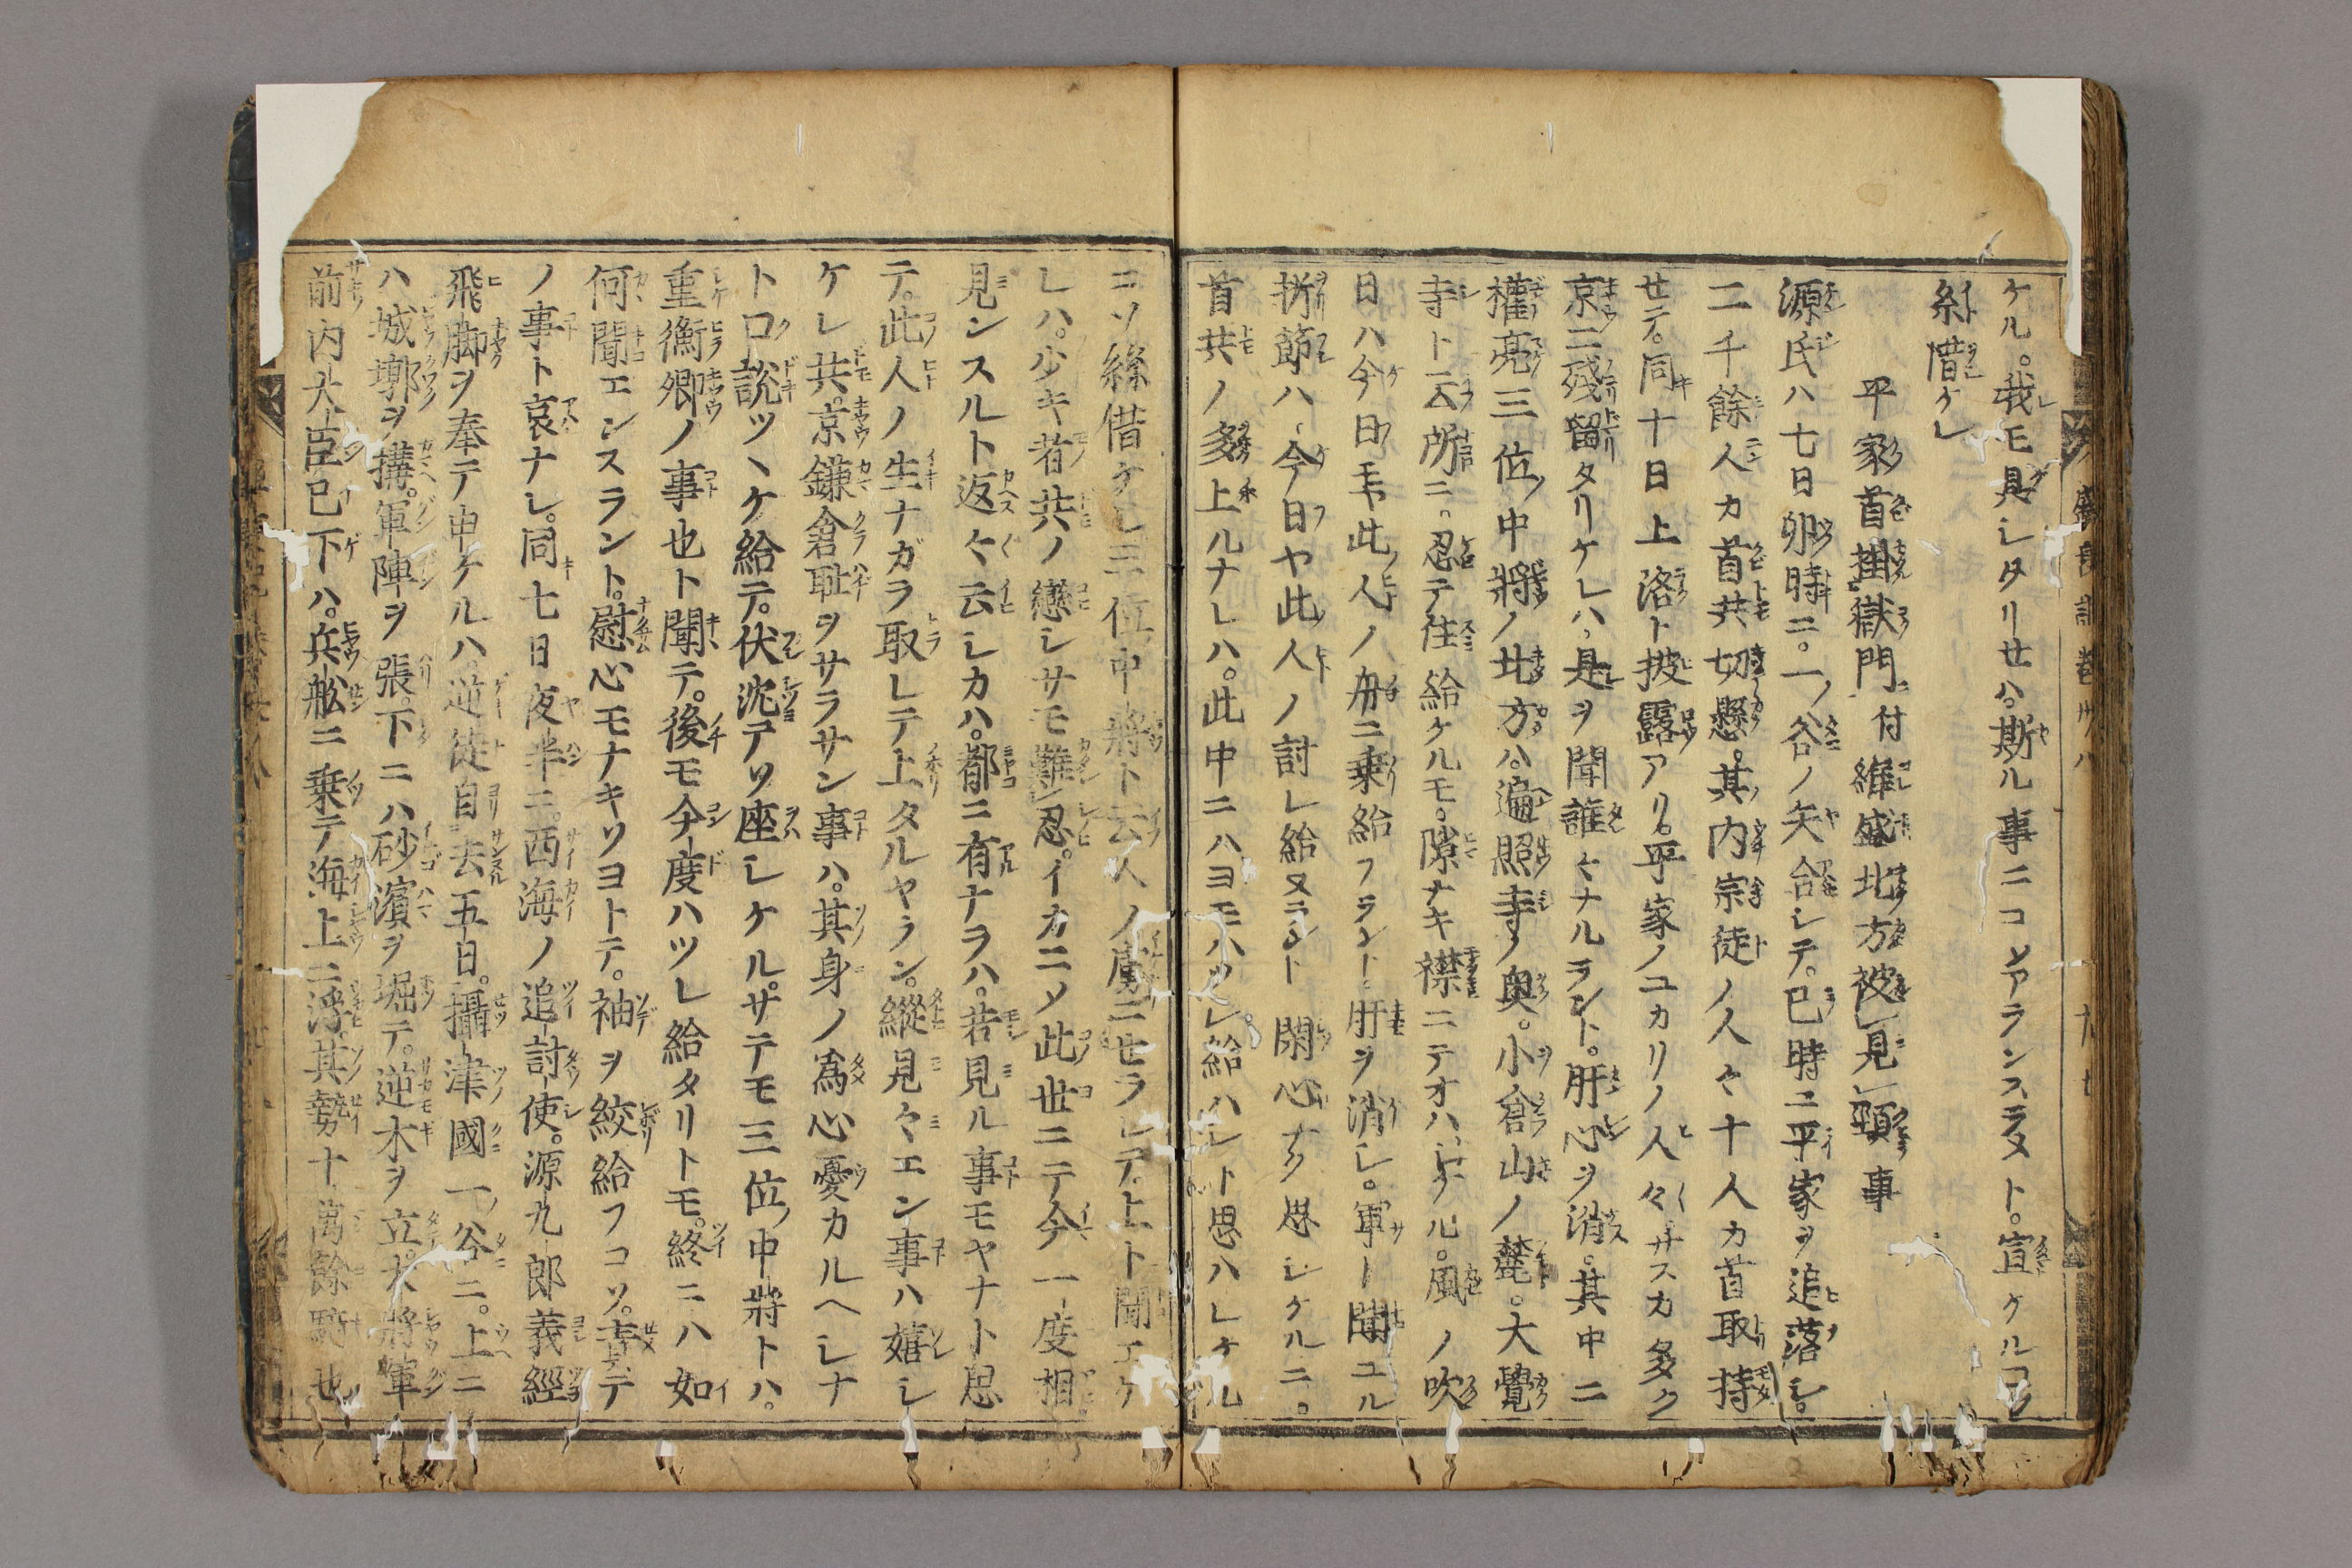 ケル。我モ具シタリせハ。斯ル事ニコソアランスラメト。宣ケルコソ
糸惜ケレ
平家首掛獄門付維盛北方被見頸事
源氏ハ七日卯時ニ。一ノ谷ノ矢合シテ。巳時ニ平家ヲ追落シ。
二千餘人カ首共切懸。其内宗徒ノ人々十人カ首取持
せテ。同十日上洛ト披露アリ。平家ノユカリノ人々サスカ多ク
京ニ殘留タリケレハ、是ヲ聞誰々ナルラント。肝心ヲ消。其中ニ
權亮三位中將ノ北方ハ。遍照寺ノ奥。小倉山ノ麓。大覺
寺ト云所ニ。忍テ住給ケルモ。隙ナキ襟ニテオハシケル。風ノ吹
日ハ今日モヤ此人ノ舟ニ乗給フラント肝ヲ消シ。軍ト聞ユル
折節ハ、今日ヤ此人ノ討レ給ヌラント閑心ナク思シケルニ。
首共ノ多上ルナレハ。此中ニハヨモハツレ給ハシト思ハレケル
コソ絲借ケレ三位中將ト云人ノ虜ニせラレテ上ト聞エケ
レハ。少キ者共ノ戀シサモ難忍。イカニソ此世ニテ今一度相
見ンスルト返々云シカハ。都ニ有ナラハ。若見ル事モヤナト思
テ。此人ノ生ナガラ取レテ上タルヤラン。縱見々エン事ハ嬉シ
ケレ共。京鎌倉耻ヲサラサン事ハ。其身ノ爲心憂カルヘシナ
ト口説ツヽケ給テ。伏沈テソ座シケル。サテモ三位中將トハ。
重衡卿ノ事也ト聞テ。後モ今度ハツレ給タリトモ。終ニハ如
何聞エンスラント。慰心モナキソヨトテ。袖ヲ絞給フコソ。責テ
ノ事ト哀ナレ。同七日夜半ニ。西海ノ追討使。源九郎義經
飛脚ヲ奉テ申ケルハ逆徒自去五日。攝津國一ノ谷ニ。上ニ
ハ城墎ヲ搆。軍陣ヲ張。下ニハ砂濱ヲ堀テ。逆木ヲ立。大將軍
前内大臣已下ハ。兵舩ニ乗テ海上ニ浮。其勢十萬餘騎也